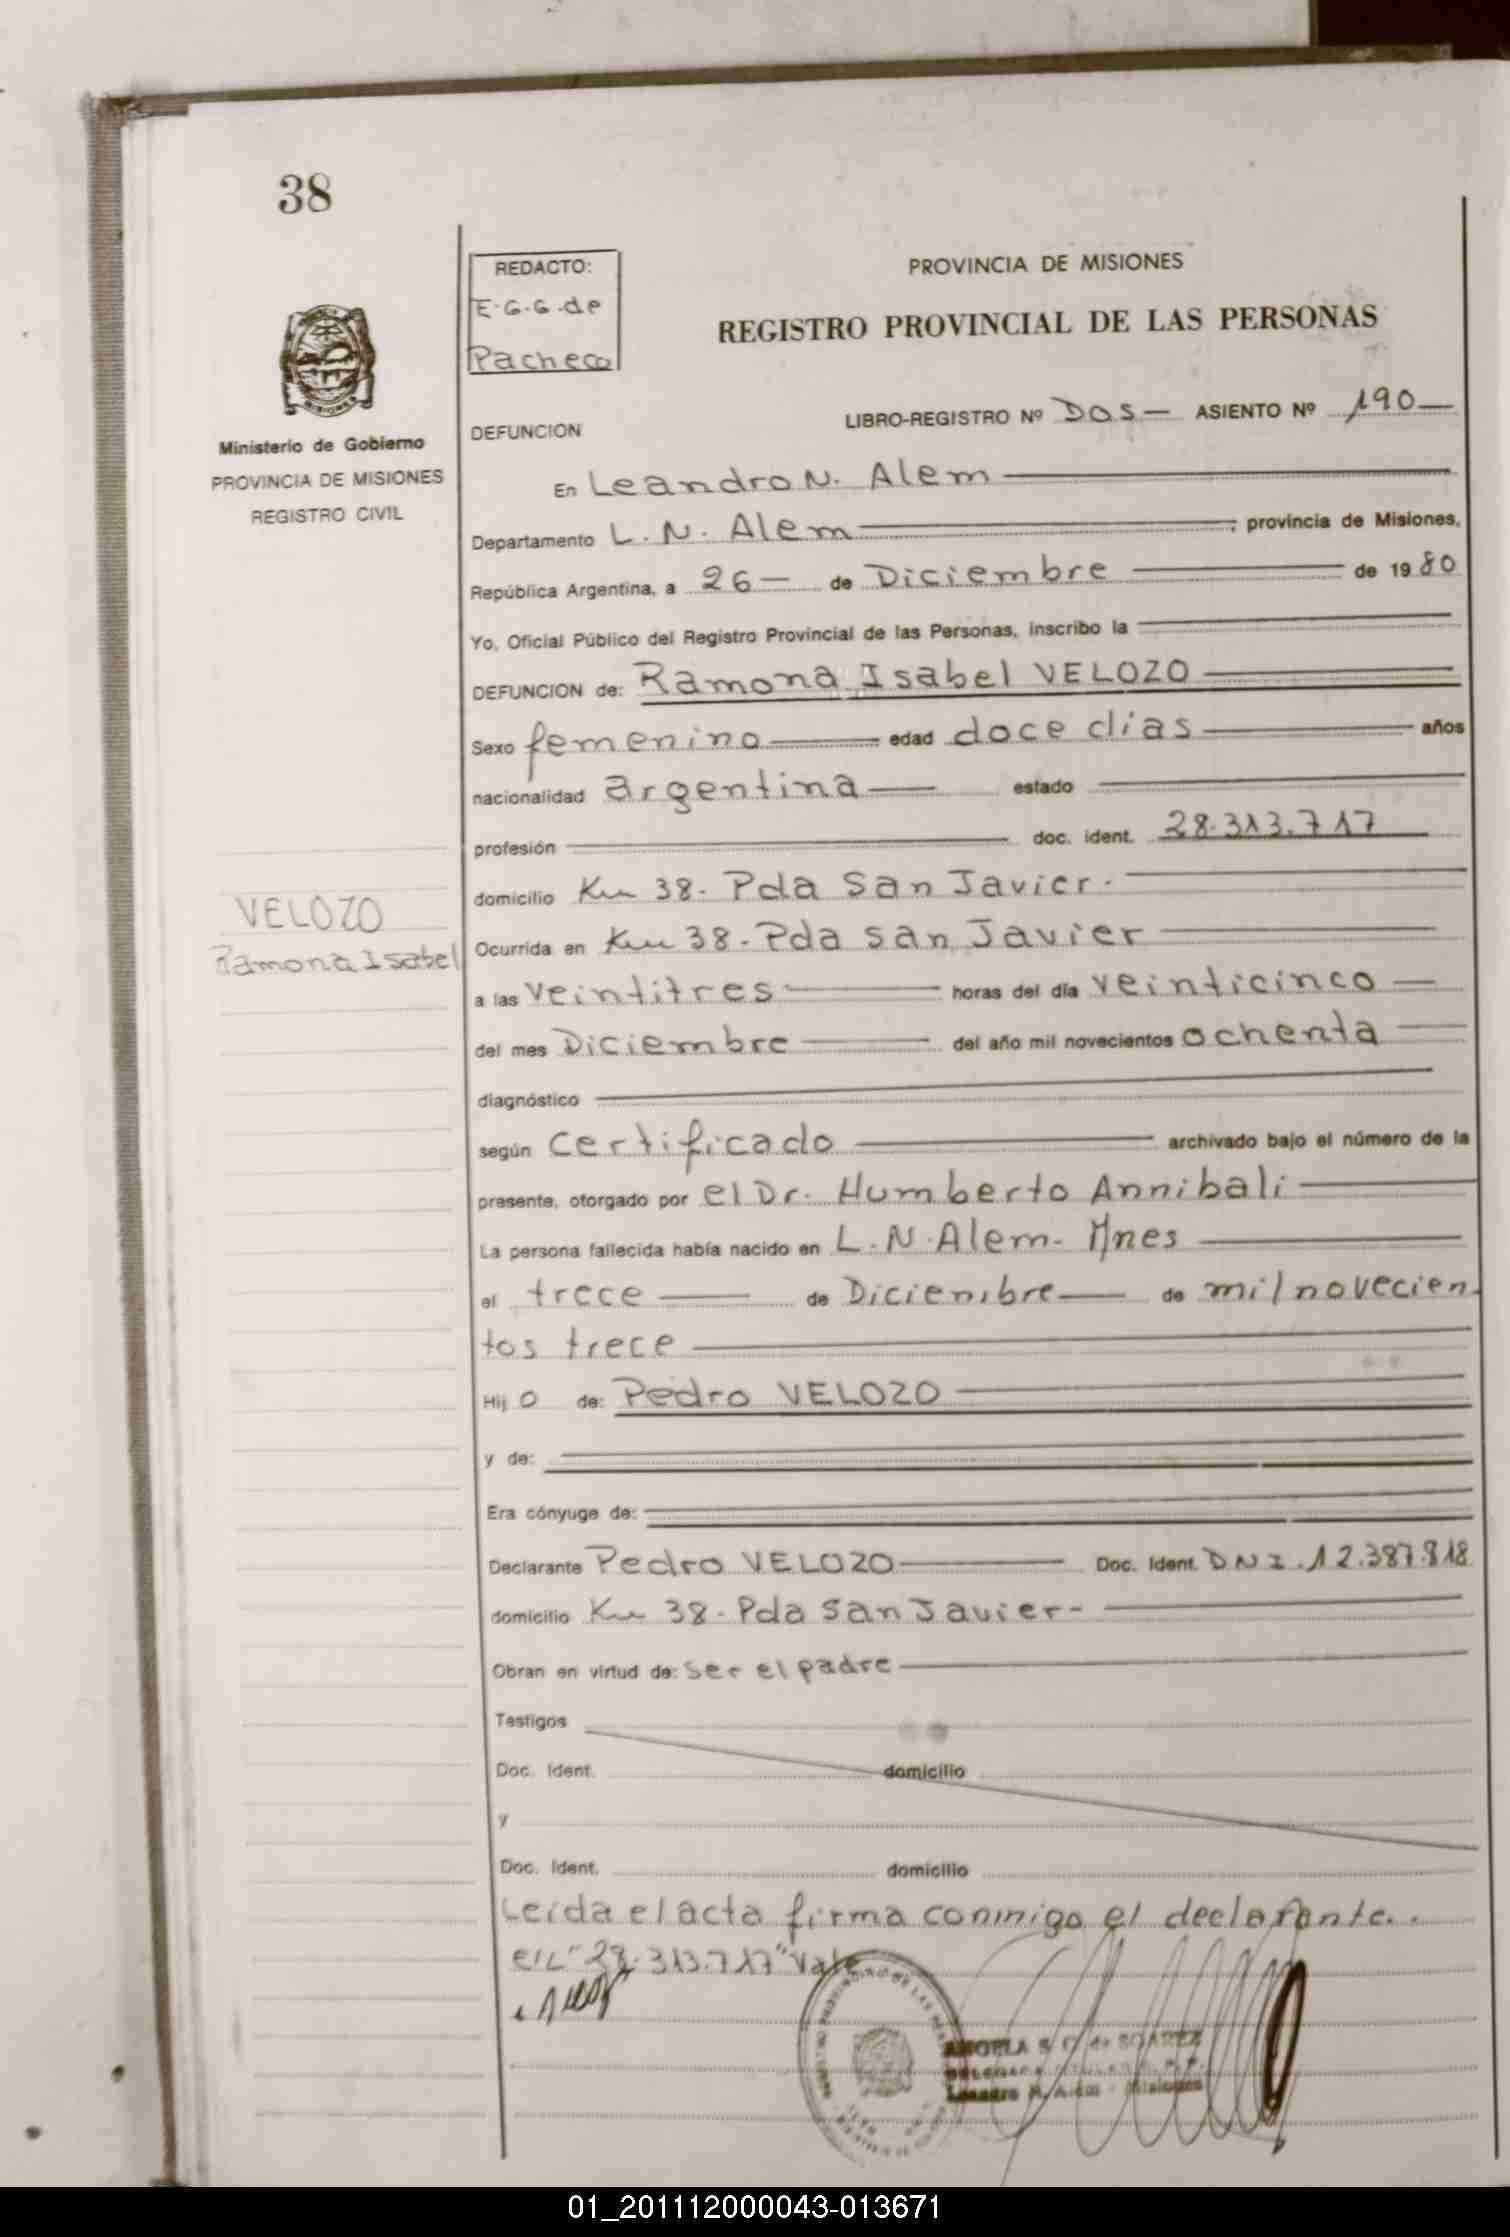 38
REDACTO:
E.G.G. de
Pacheco
PROVINCIA DE MISIONES
REGISTRO PROVINCIAL DE LAS PERSONAS
MISIONES
Ministerio de Gobierno
PROVINCIA DE MISIONES
REGISTRO CIVIL
DEFUNCION
LIBRO-REGISTRO Nº DOS— ASIENTO Nº 190—
En Leandro N. Alem
Departamento L. N. Alem ; provincia de Misiones,
República Argentina, a 26— de Diciembre de 1980
Yo, Oficial Público del Registro Provincial de las Personas, inscribo la
DEFUNCION de: Ramona Isabel VELOZO
Sexo femenino edad doce dias años
nacionalidad argentina estado
profesión doc. ident. 28.313.717
domicilio Km 38. Pda San Javier.
VELOZO
Ramona Isabel
Ocurrida en Km 38 - Pda San Javier
a las veintitres horas del día veinticinco
del mes Diciembre del año mil novecientos ochenta
diagnóstico
según certificado archivado bajo el número de la
presente, otorgado por el Dr. Humberto Annibali
La persona fallecida había nacido en L. N. Alem. Mnes
el trece de Diciembre de mil novecien-
tos trece
Hij o de: Pedro VELOZO
y de:
Era cónyuge de:
Declarante Pedro VELOZO Doc. Ident. DNI. 12.387.818
domicilio Km 38 - Pda San Javier -
Obran en virtud de: ser el padre
Testigos
Doc. Ident. domicilio
y
Doc. Ident. domicilio
Leida el acta firma conmigo el declarante..
E/L "28.313.717" Vale
ANGELA S. C. de SOAREZ
Leandro N. Alem - Misiones
01_201112000043-013671